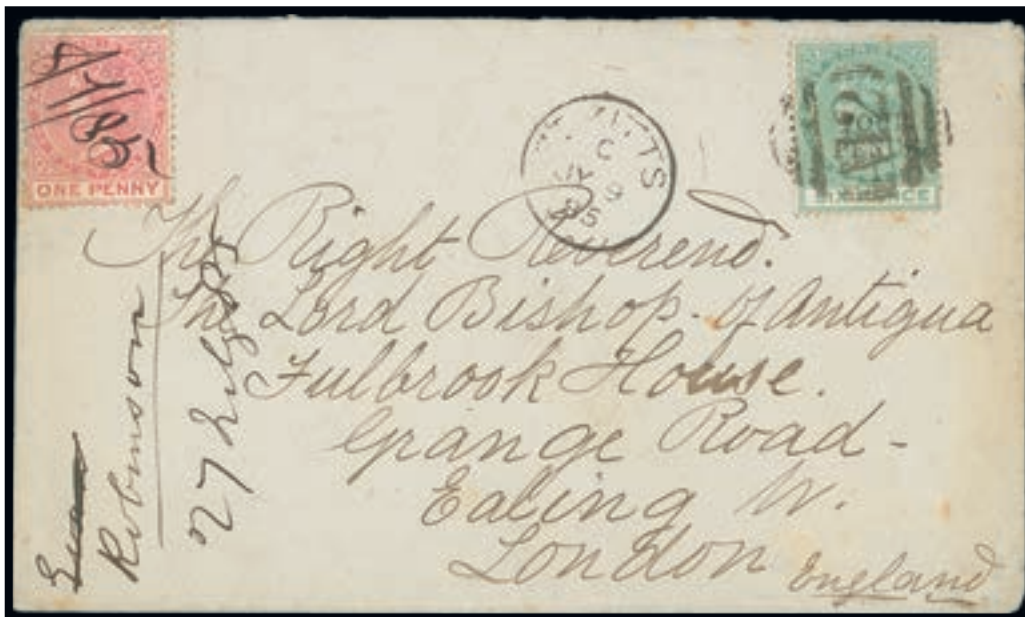 4/7/85
ONE PENNY
ST. KITTS
C
JY 9
85
A12
The Right Reverend.
The Lord Bishop of Antigua
Fulbrook House.
Grange Road-
Ealing W.
London England
Robinson
27 July 85